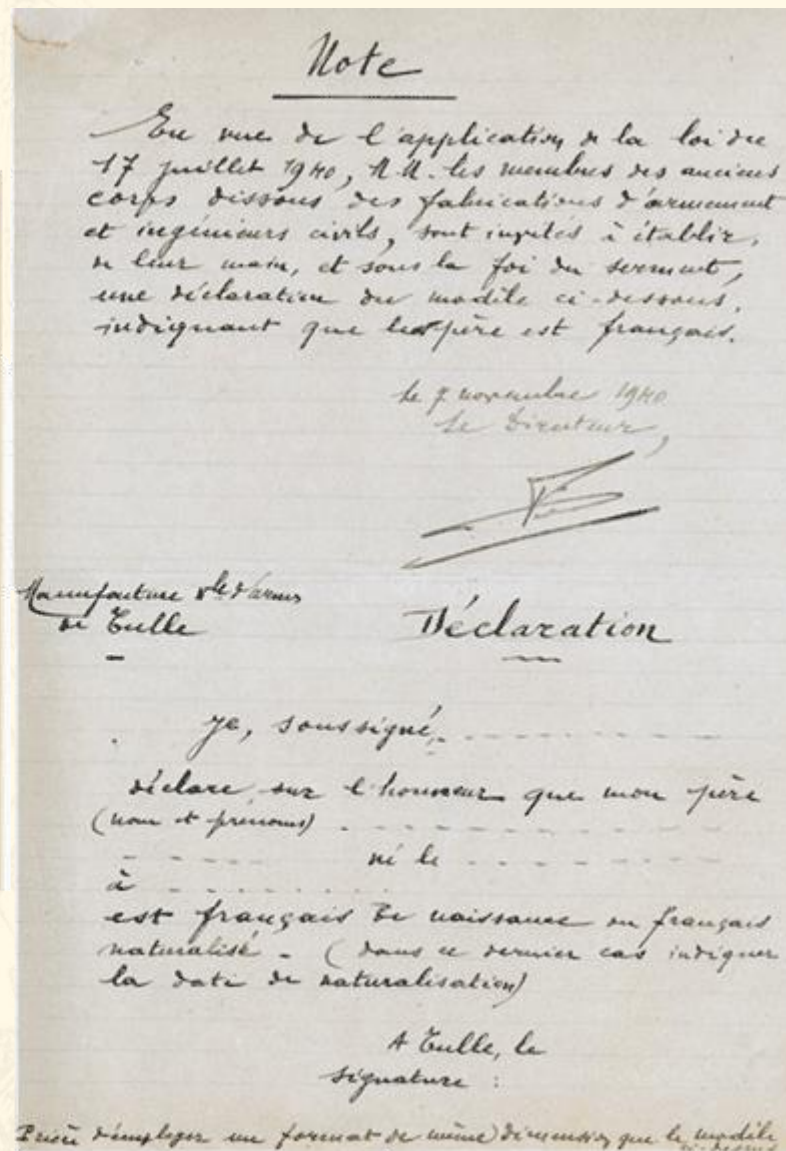 Note
En vue de l'application de la loi du
17 juillet 1940, M.M. les membres des anciens
corps dissous des fabrications d'armement
et ingénieurs civils, sont invités à établir,
de leur main, et sous la foi du serment,
une déclaration du modèle ci-dessous,
indiquant que leur père est français.
le 7 novembre 1940
Le Directeur,
Manufacture Nle d'armes
de Tulle
Déclaration
Je, soussigné,
déclare sur l'honneur que mon père
(nom et prénoms)
né le
à
est français de naissance ou français
naturalisé - (dans ce dernier cas indiquer
la date de naturalisation)
A Tulle, le
signature :
Prière d'employer un format de même dimension que le modèle
ci-dessus